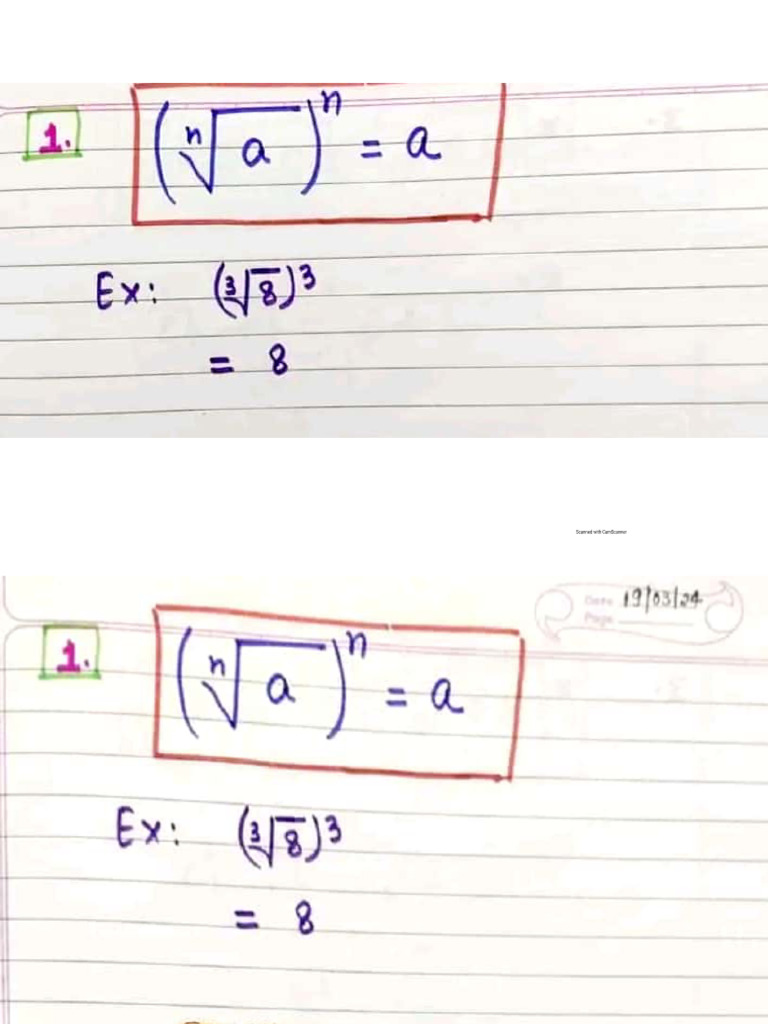 1. (ⁿ√a)ⁿ = a
Ex: (³√8)³
= 8
Scanned with CamScanner
Date 19/03/24
Page
1. (ⁿ√a)ⁿ = a
Ex: (³√8)³
= 8